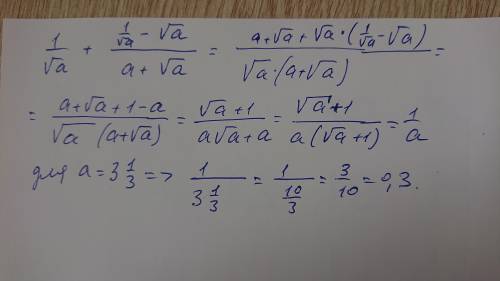 1/√a + (1/√a - √a)/(a + √a) = (a + √a + √a · (1/√a - √a))/(√a · (a + √a)) =
= (a + √a + 1 - a)/(√a (a + √a)) = (√a + 1)/(a√a + a) = (√a + 1)/(a(√a + 1)) = 1/a
для a = 3 1/3 => 1/(3 1/3) = 1/(10/3) = 3/10 = 0,3.